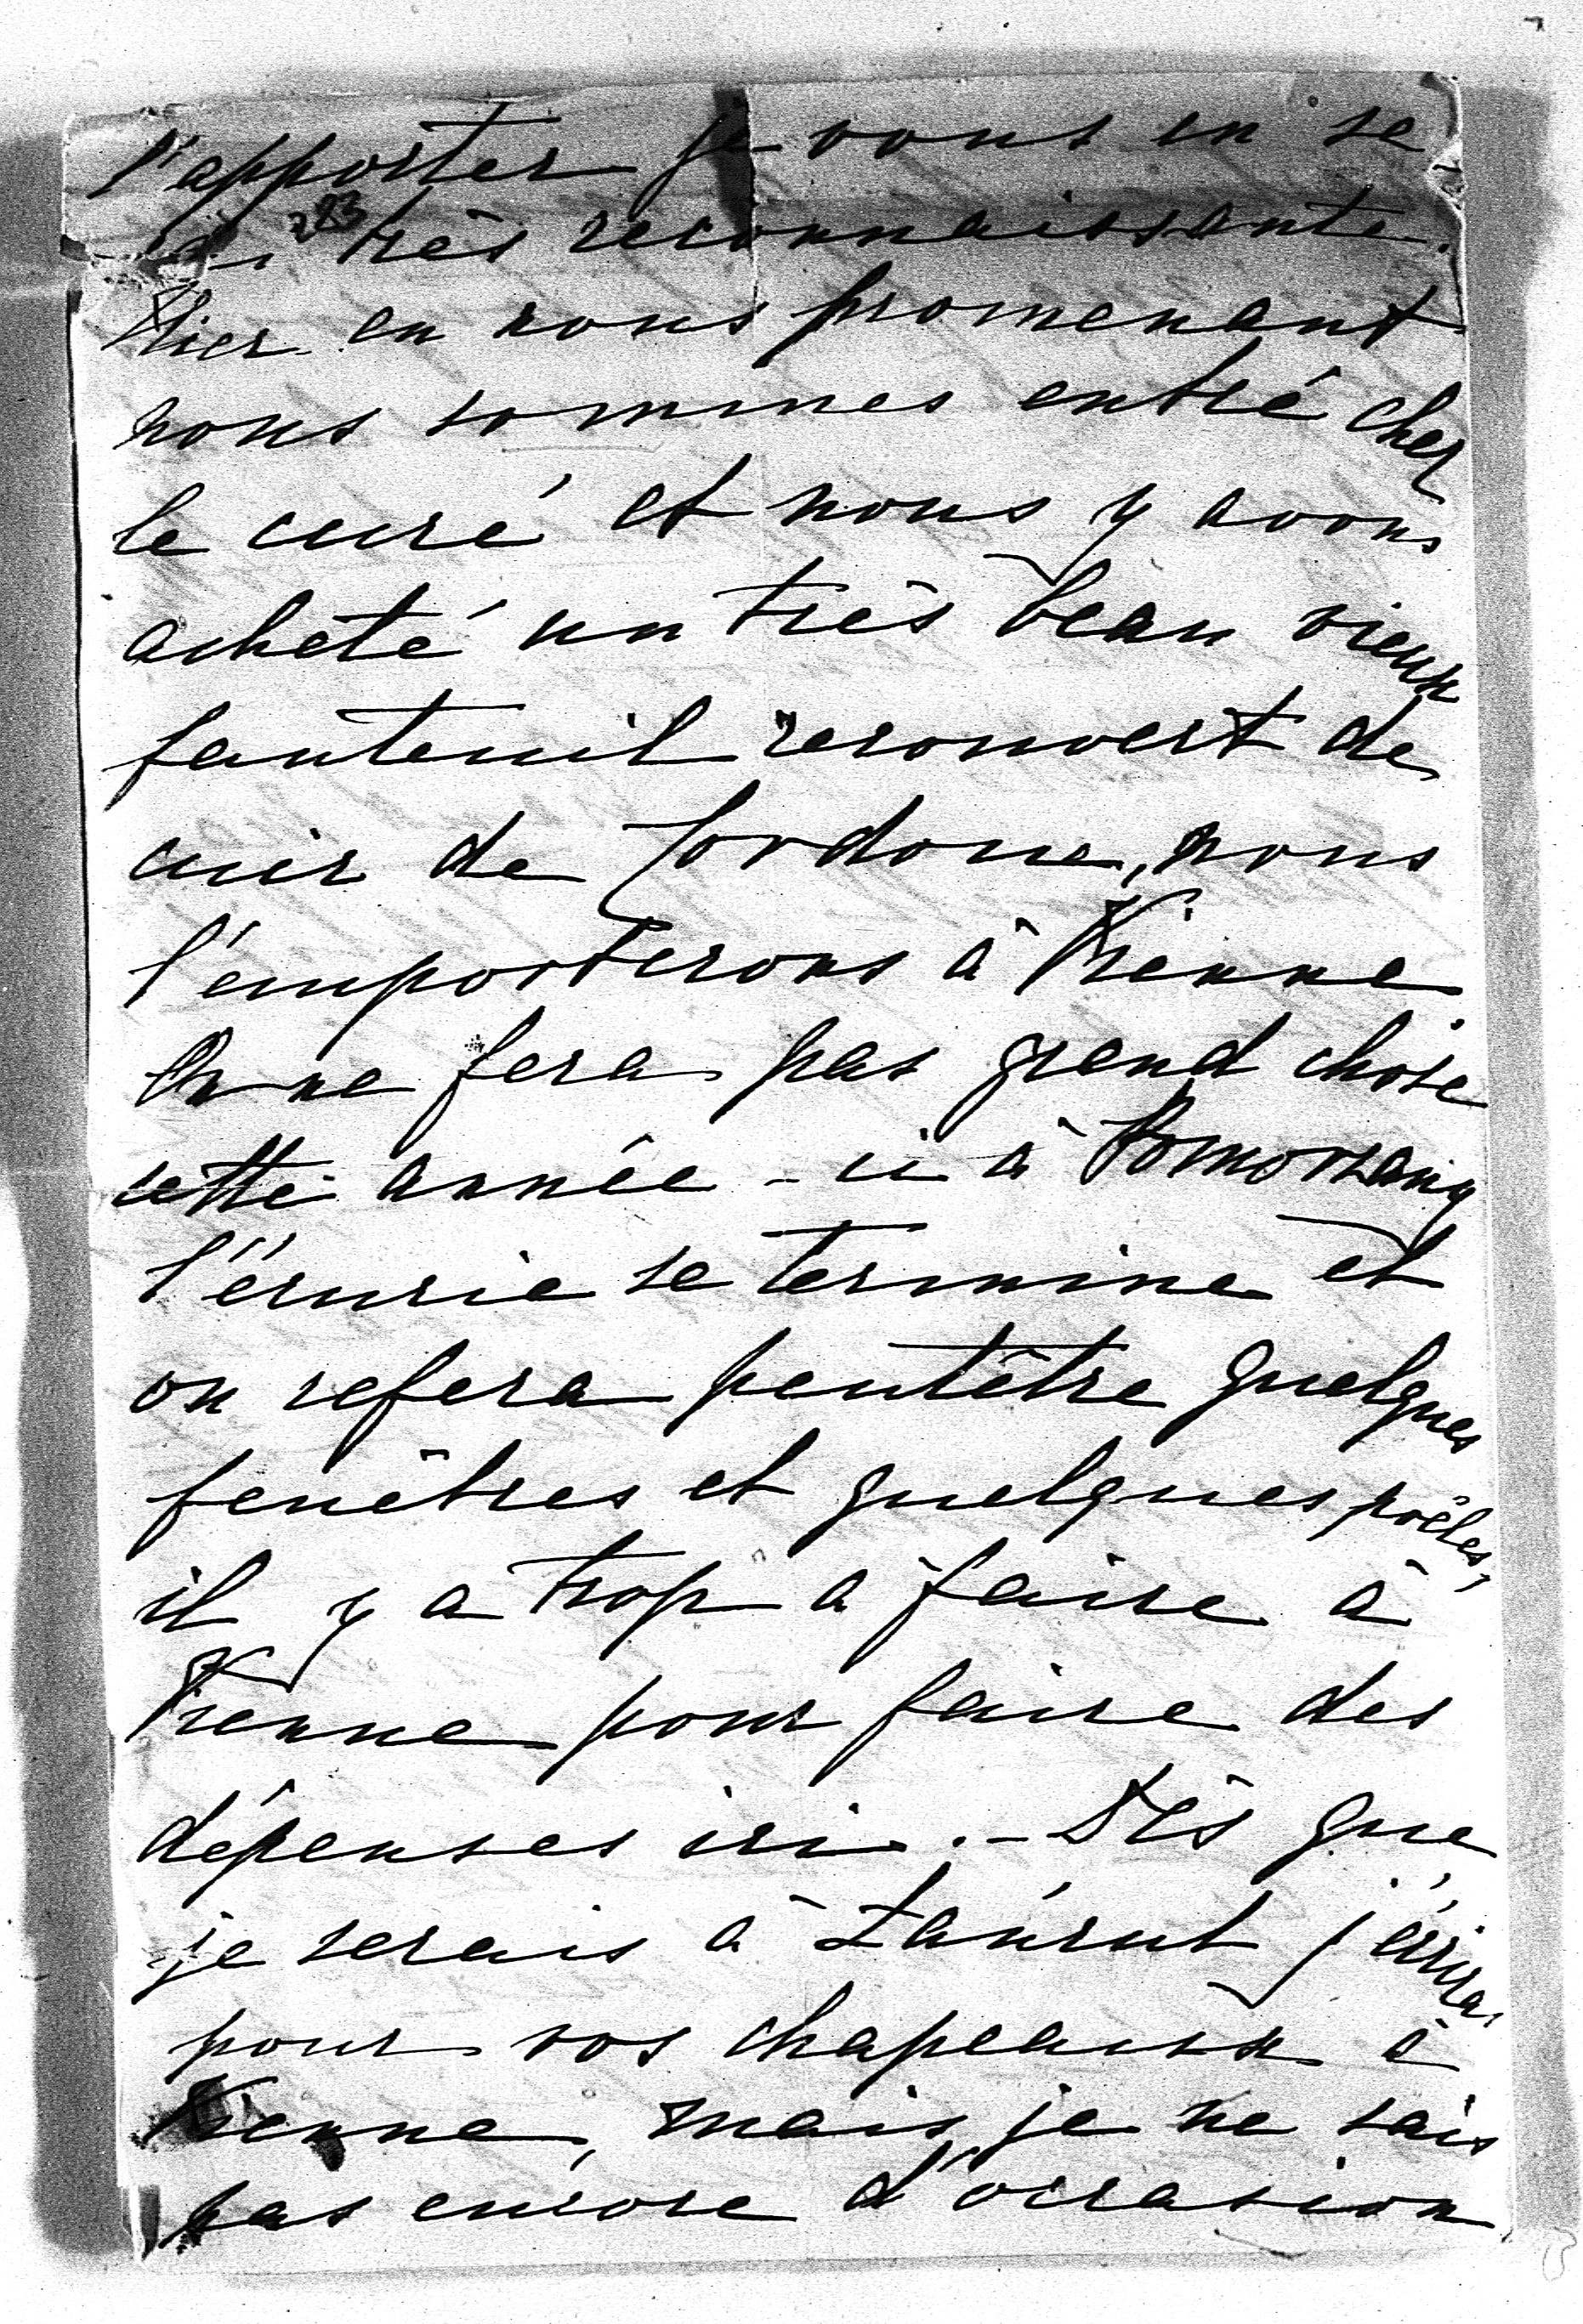 l'apporter je vous en se
rai très reconnaissante.
283
Hier en nous promenant
nous sommes entré chez
le curé et nous y avons
acheté un très beau vieux
fauteuil recouvert de
cuir de Cordoue, nous
l'emporterons à Vienne.
On ne fera pas grand chose
cette année-ci à Pomorzany
l'écurie se termine et
on refera peutêtre quelques
fenêtres et quelques poêles,
il y a trop à faire à
Vienne pour faire des
dépenses ici. - Dès que
je serais à Łańcut j'écrirai
pour vos chapeaux à
Vienne, mais je ne sais
pas encore d'occasion